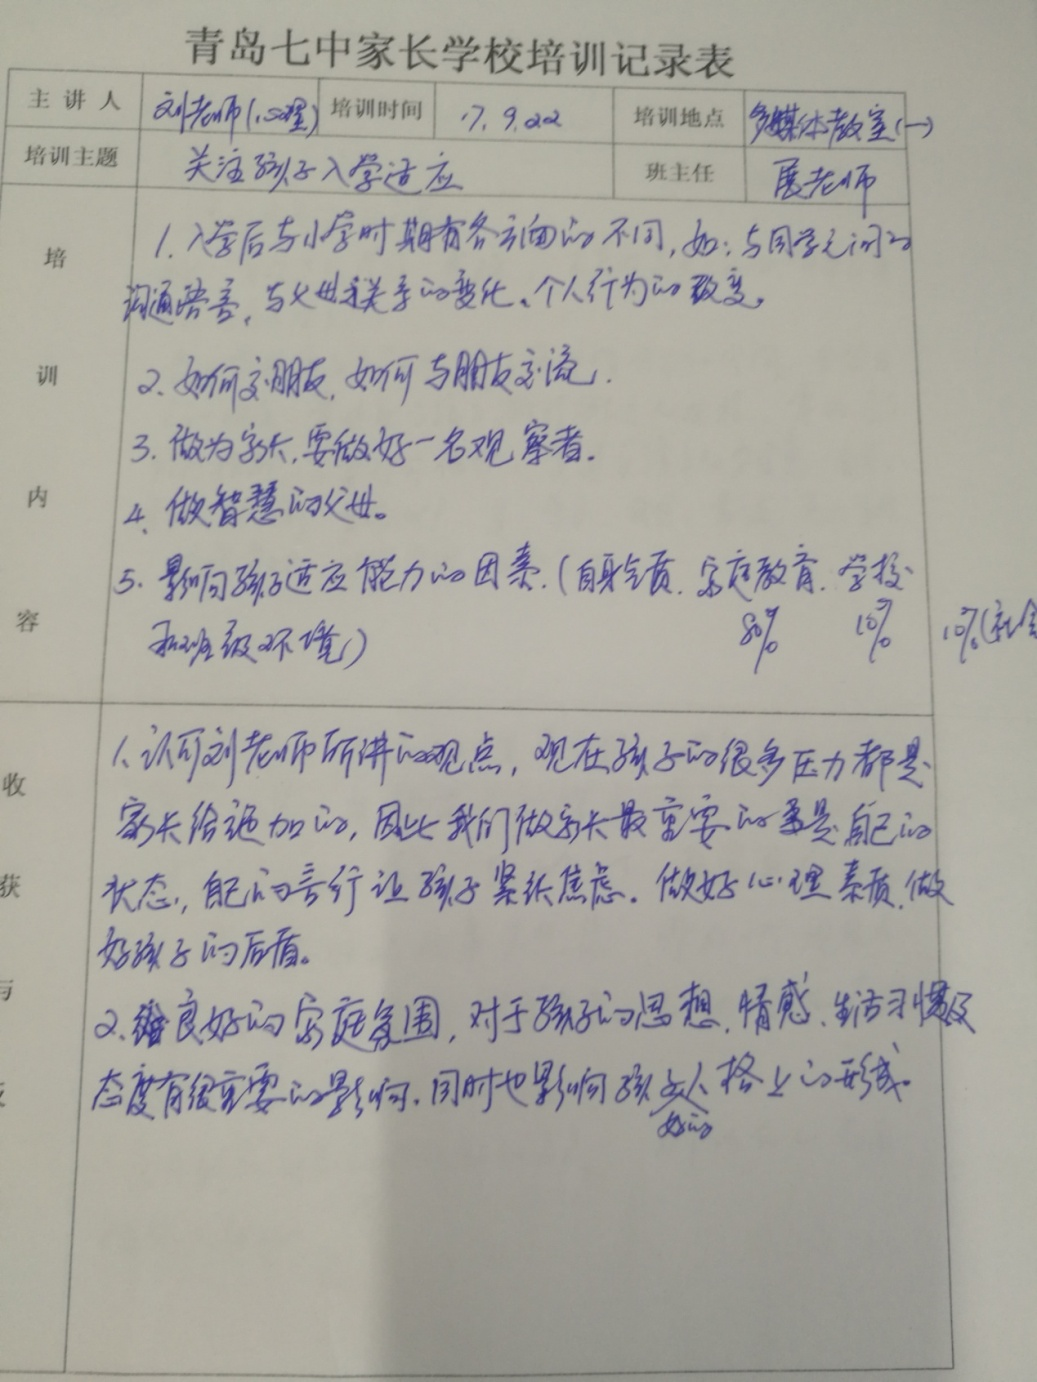 青岛七中家长学校培训记录表
主讲人 刘老师(心理) 培训时间 17.9.22 培训地点 多媒体教室(一)
培训主题 关注孩子入学适应 班主任 展老师
培训内容
1.入学后与小学时期有各方面的不同,如:与同学之间的
沟通语言,与父母关系的变化、个人行为的改变。
2.如何交朋友,如何与朋友交流.
3.做为家长,要做好一名观察者。
4、做智慧的父母。
5.影响孩子适应能力的因素.(自身气质.家庭教育.学校
和班级环境) 80% 10% 10%(社会
收获与
1、认可刘老师所讲的观点,现在孩子的很多压力都是
家长给施加的,因此我们做家长最重要的事是自己的
状态,自己的言行让孩子紧张焦虑。做好心理素质,做
好孩子的后盾。
2、良好的家庭氛围,对于孩子的思想、情感、生活习惯及
态度有很重要的影响.同时也影响孩子人格上的形成。
好的